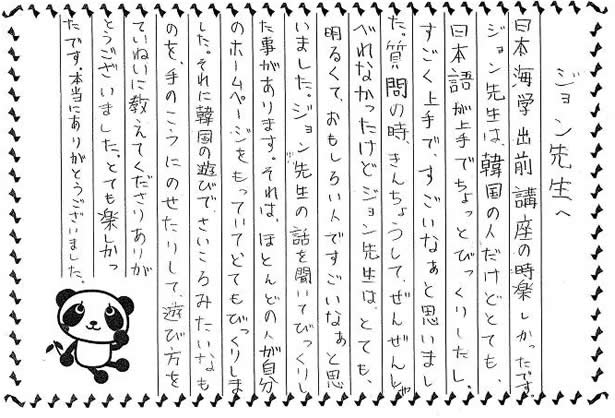 ジョン先生へ
日本海学出前講座の時楽しかったです
ジョン先生は、韓国の人だけどとても、
日本語が上手でちょっとびっくりしたし、
すごく上手で、すごいなぁと思いまし
た。質問の時、きんちょうして、ぜんぜんしゃ
べれなかったけどジョン先生は、とても、
明るくて、おもしろい人ですごいなぁと思
いました。ジョン先生の話を聞いてびっくりし
た事があります。それは、ほとんどの人が自分
のホームページをもっていてとてもびっくりしま
した。それに韓国の遊びで、さいころみたいなも
のを、手のこうにのせたりして、遊び方を
ていねいに教えてくださりありが
とうございました。とても楽しかっ
たです。本当にありがとうございました。